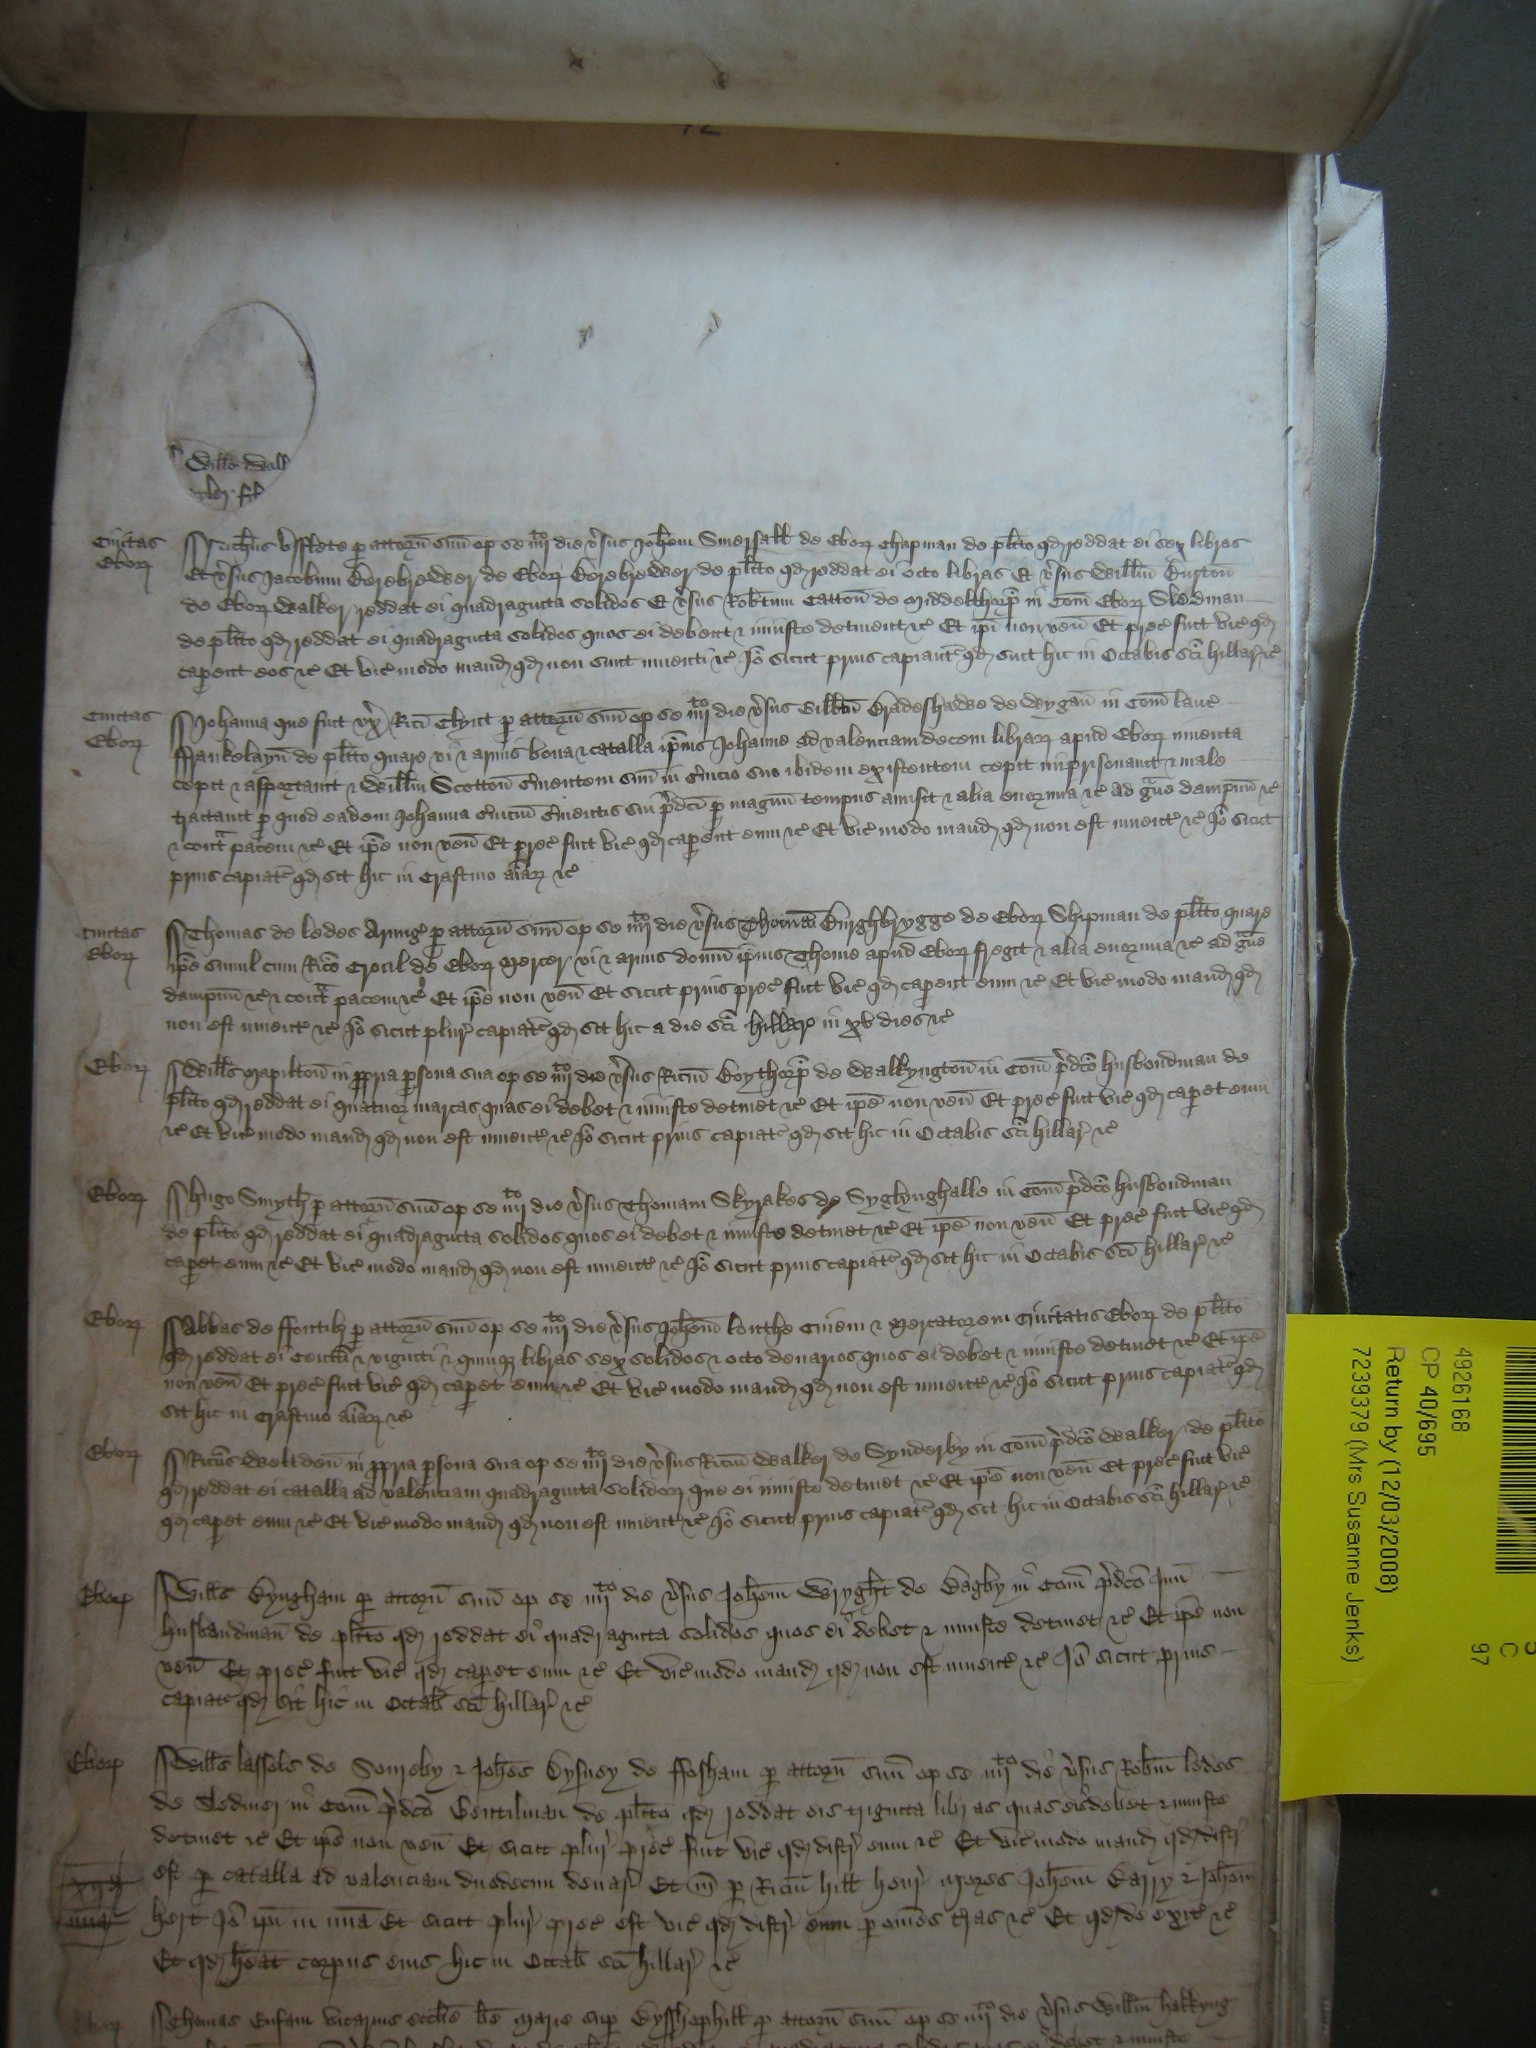 Willo Wall
Civitas Ebor Mich̄us Ussflete p attorn̄ suū op se iiijto die v̄sus Joh̄em Smersall de Ebor Chapman de pl̄ito qd reddat ei sex libras
Et v̄sus Jacobum Berebrewer de Ebor Berebrewer de pl̄ito qd reddat ei octo libras Et v̄sus Will̄m Burton
de Ebor Walker reddat ei quadraginta solidos Et v̄sus Rob̄tum Catton de Middelthorp in Com Ebor Sledman
de pl̄ito qd reddat ei quadraginta solidos quos ei debent & iniuste detinent &c Et ip̄i non ven̄ Et prec̄ fuit vic̄ qd
caperent eos &c Et vic̄ modo mand qd non sunt inventi &c Jo sicut prius capiant̄ qd sint hic in Octabis sc̄i hillar̄ &c
Civitas Ebor Johanna que fuit ux̄ Rici Clynt p attorn̄ suū op se iiijto die v̄sus Gilb̄tū Bradeshawe de Wygan in Com̄ lanc̄
ffrankelayn de pl̄ito quare vi & armis bona & catalla ip̄ius Johanne ad valenciam decem librar apud Ebor inventa
cepit & asportavit & Will̄m Scotton s̄vientem suū in s̄vicio suo ibidem existentem cepit imprisonavit & male
tractavit p quod eadem Johanna s̄vicium s̄vientis sui p̄dc̄i p magnū tempus amisit & alia enormia &c ad ḡve dampnū &c
& cont̄ pacem &c Et ip̄e non ven̄ Et prec̄ fuit vic̄ qd caperent eum &c Et vic̄ modo mand qd non est invent̄ &c Jo sicut
prius capiat̄ qd sit hic in Crastino aīar &c
Civitas Ebor Thomas de ledes Armiḡ p attorn̄ suū op se iiijto die v̄sus Thomā Burghbrygge de Ebor Shipman de pl̄ito quare
ip̄e simul cum Rico Crocil de Ebor Mercer vi & armis domū ip̄ius Thome apud Ebor fregit & alia enormia &c ad ḡve
dampnū &c & cont̄ pacem &c Et ip̄e non ven̄ Et sicut prius prec̄ fuit vic̄ qd caperent eum &c Et vic̄ modo mand qd
non est invent̄ &c Jo sicut plur̄ capiat̄ qd sit hic a die sc̄i hillar̄ in xv dies &c
Ebor Will̄s Mapilton in ppria p̄sona sua op se iiijto die v̄sus Ricm̄ Boythorp de Walkyngton in Com̄ p̄dco husbondman de
pl̄ito qd reddat ei quatuor marcas quas ei debet & iniuste detinet &c Et ip̄e non ven̄ Et prec̄ fuit vic̄ qd caperet eum
&c Et vic̄ modo mand qd non est invent̄ &c Jo sicut prius capiat̄ qd sit hic in Octabis sc̄i hillar̄ &c
Ebor Hugo Smyth p attorn̄ suū op se iiijto die v̄sus Thomam Skyrakes de Syglynghalle in Com̄ p̄dco husbondman
de pl̄ito qd reddat ei quadraginta solidos quos ei debet & iniuste detinet &c Et ip̄e non ven̄ Et prec̄ fuit vic̄ qd
caperet eum &c Et vic̄ modo mand qd non est invent̄ &c Jo sicut prius capiat̄ qd sit hic in Octabis sc̄i hillar̄ &c
Ebor Abbas de ffontib p attorn̄ suū op se iiijto die v̄sus Joh̄em louthe Civem & Mercatorem Civitatis Ebor de pl̄ito
qd reddat ei Centū & viginti & quinq libras sex solidos & octo denarios quos ei debet & iniuste detinet &c Et ip̄e
non ven̄ Et prec̄ fuit vic̄ qd caperet eum &c Et vic̄ modo mand qd non est invent̄ &c Jo sicut prius capiat̄ qd
sit hic in Crastino aīar &c
Ebor Ricūs Weltden in ppria p̄sona sua op se iiijto die v̄sus Ricm̄ Walker de Synderby in Com̄ p̄dco Walker de pl̄ito
qd reddat ei catalla ad valenciam quadraginta solidor que ei iniuste detinet &c Et ip̄e non ven̄ Et prec̄ fuit vic̄
qd caperet eum &c Et vic̄ modo mand qd non est invent̄ &c Jo sicut prius capiat̄ qd sit hic in Octabis sc̄i hillar̄ &c
Ebor Will̄s Byngham p attorn̄ suū op se iiijto die v̄sus Joh̄em Wryght de Bagby in Com̄ p̄dco Jun̄
husbandman de pl̄ito qd reddat ei quadraginta solidos quos ei debet & iniuste detinet &c Et ip̄e non
ven̄ Et prec̄ fuit vic̄ qd caperet eum &c Et vic̄ modo mand qd non est invent̄ &c Jo sicut prius
capiat̄ qd sit hic in Octab̄ sc̄i hillar̄ &c
Ebor Will̄s lassels de Soureby & Joh̄es Bysney de ffosham p attorn̄ suū op se iiijto die v̄sus Rob̄m ledes
de Sedmer in Com̄ p̄dco Gentilman de pl̄ito qd reddat eis triginta libras quas eis debet & iniuste
detinet &c Et ip̄e non ven̄ Et sicut plur̄ prec̄ fuit vic̄ qd distr̄ eum &c Et vic̄ modo mand qd distr̄
est p catalla ad valenciam duodecim denar̄ Et m̄ p Ricm̄ hill henr̄ Mores Joh̄em Barry & Joh̄em
hert Jo ip̄i in mīa Et sicut plur̄ prec̄ est vic̄ qd distr̄ eum p om̄es t̄ras &c Et qd de exit̄ &c
Et qd heat corpus eius hic in Octab̄ sc̄i hillar̄ &c
Ebor Thomas Cusam vicarius eccl̄ie be Marie sup Bysshophill p attorn̄ suū op se iiijto die v̄sus Will̄m hekkyng
debet & iniuste
4926168
CP 40/695
Return by (12/03/2008)
7239379 (Mrs Susanne Jenks)
C
97